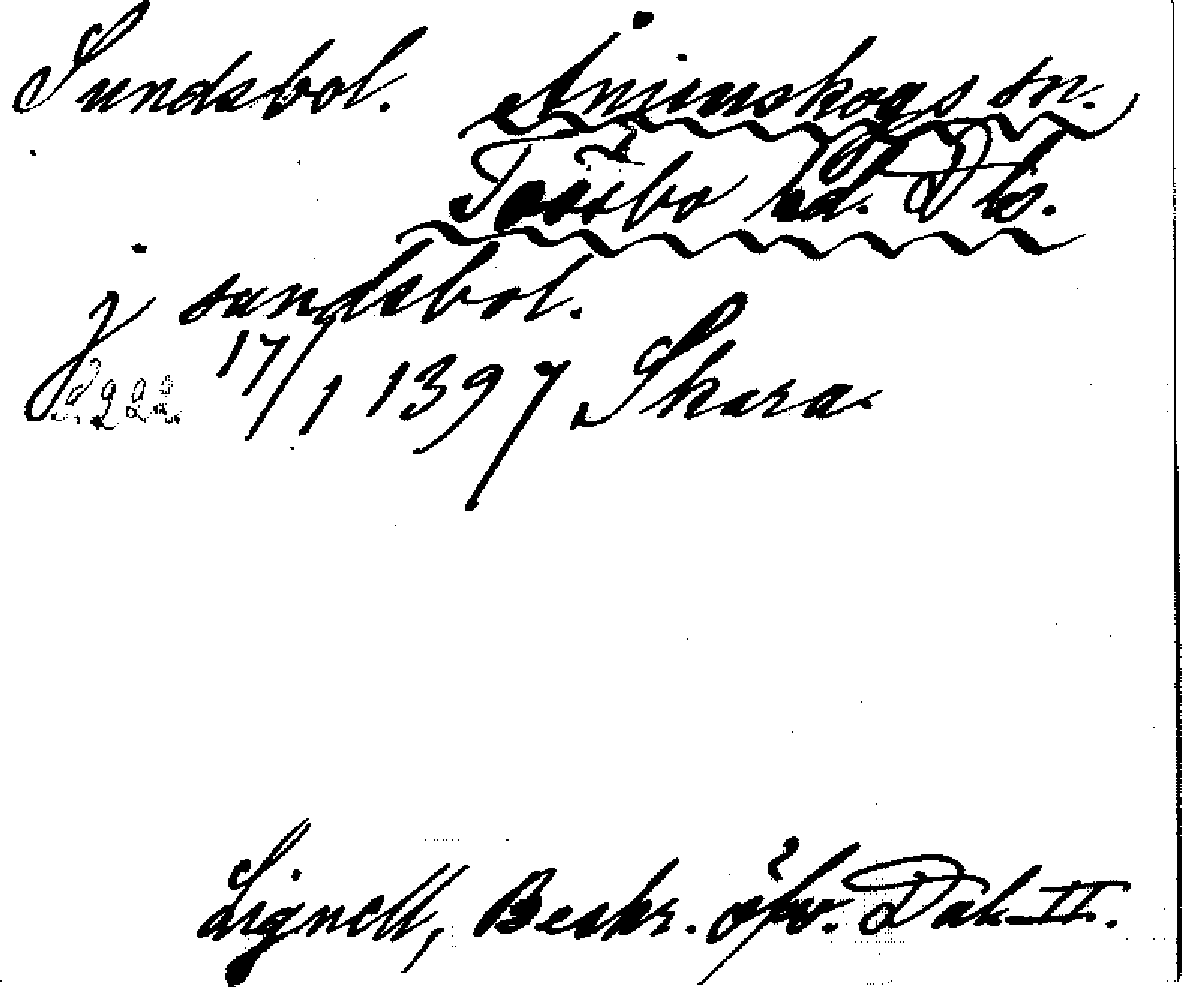 Sundsbol. Ånimskogs sn.
Tössbo hd. Dls.
j sundsbol.
17/1 1397 Skara.
Lignell, Beskr. öfv. Dal. II.